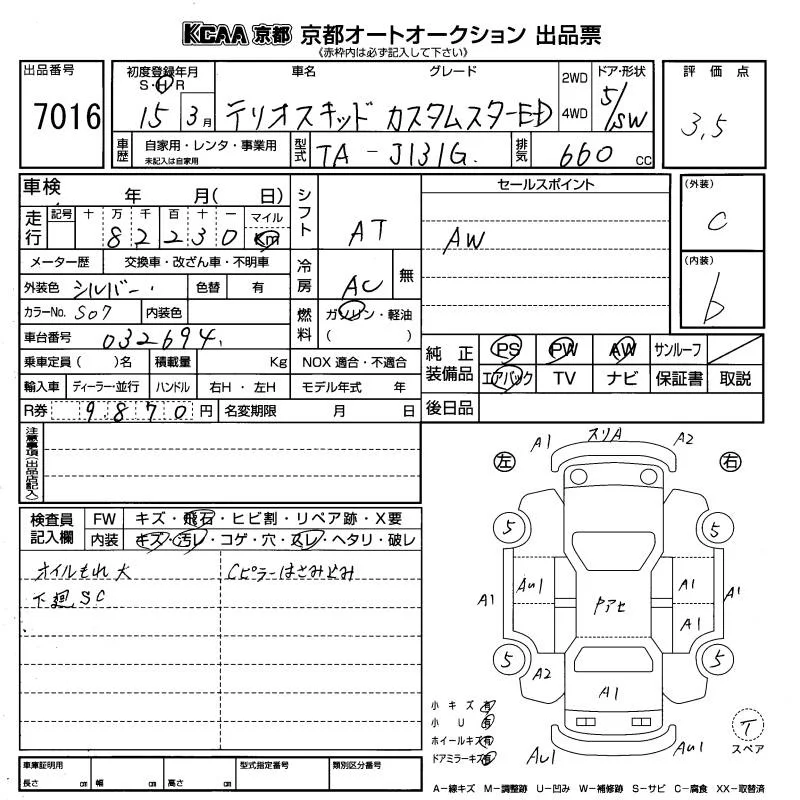 KCAA 京都 京都オートオークション 出品票
《赤枠内は必ず記入して下さい》
出品番号
7016
初度登録年月
S・H R
15 3月
車名 グレード
テリオスキッド カスタムスターED
2WD
4WD
ドア・形状
5/SW
評価点
3,5
車歴
自家用・レンタ・事業用
未記入は自家用
型式
TA-J131G.
排気
660 cc
車検 年 月( 日)
走行
記号 十 万 千 百 十 一 マイル
82230 Km
メーター歴 交換車・改ざん車・不明車
外装色 シルバー・ 色替 有
カラーNo. S07 内装色
車台番号 032694,
乗車定員( )名 積載量 Kg
輸入車 ディーラー・並行 ハンドル 右H・左H
R券 9.870円 名変期限 月 日
シフト AT
冷房 AC 無
燃料 ガソリン・軽油
( )
NOX 適合・不適合
モデル年式 年
セールスポイント
AW
(外装)
C
(内装)
b
純正装備品
PS PW AW サンルーフ
エアバック TV ナビ 保証書 取説
後日品
注意事項(出品店記入)
検査員記入欄
FW キズ・飛石・ヒビ割・リペア跡・X要
内装 キズ・汚レ・コゲ・穴・スレ・ヘタリ・破レ
オイルもれ 大
下廻SC
Cピラーはさみこみ
左 右
A1 スリA A2
5 5
A1 AU1 A1 A1
PアセA1
5 5
A2 A1
AU1 AU1
小キズ有
小U有
ホイールキズ有
ドアミラーキズ有
T
スペア
車庫証明用
長さ cm 幅 cm 高さ cm
型式指定番号
類別区分番号
A-線キズ M-調整跡 U-凹み W-補修跡 S-サビ C-腐食 XX-取替済